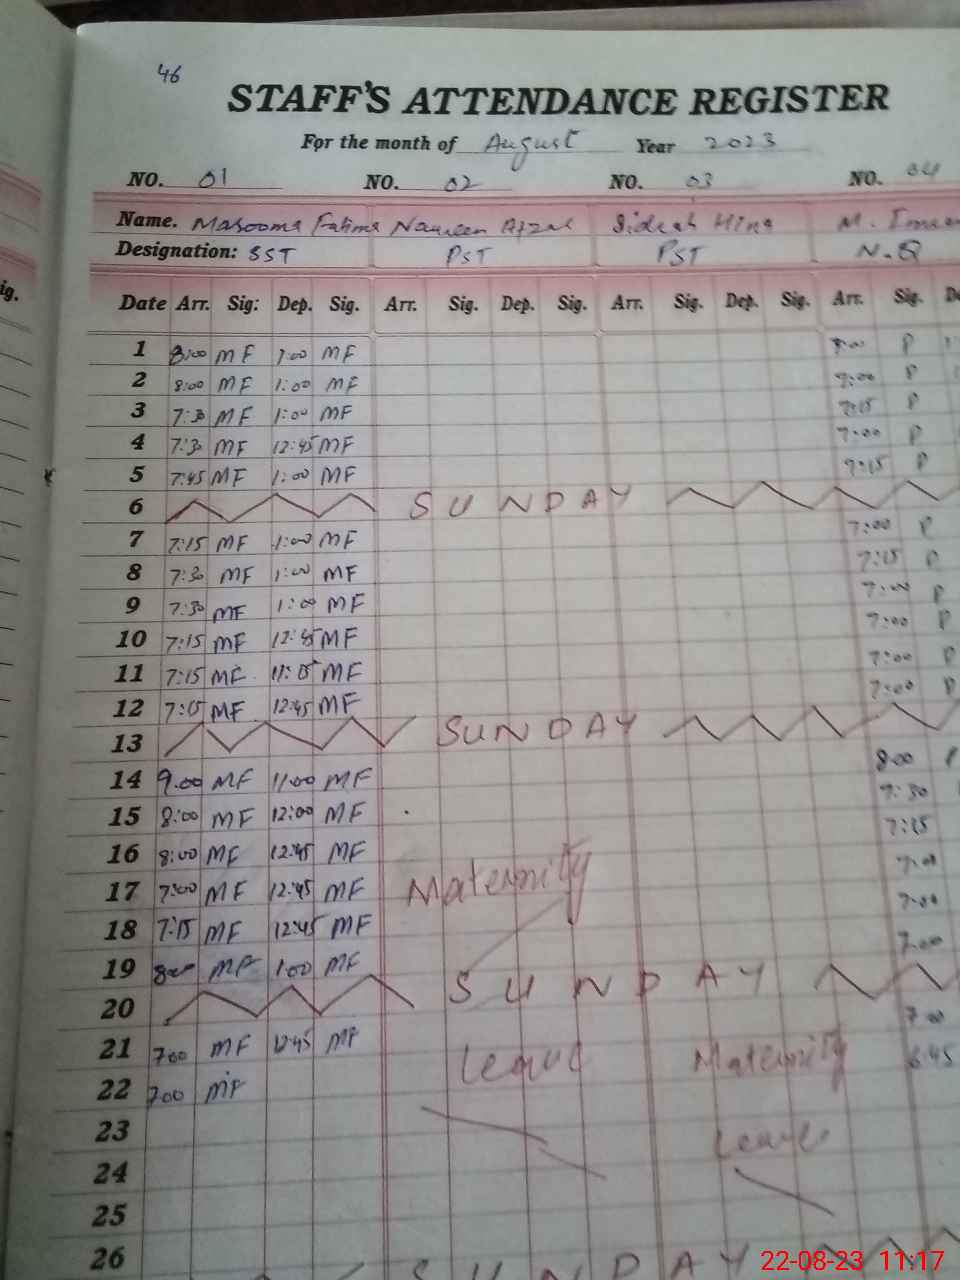 46
STAFF'S ATTENDANCE REGISTER
For the month of August Year 2023
NO. 01 NO. 02 NO. 03 NO. 04
Name. Masooma Fatima Naureen Afzal Sidrah Hina M.
Designation: SST PST PST N.Q
ig.
Date Arr. Sig: Dep. Sig. Arr. Sig. Dep. Sig. Arr. Sig. Dep. Sig. Arr. Sig.
1 8:00 MF 1:00 MF P
2 8:00 MF 1:00 MF 7:00 P
3 7:30 MF 1:00 MF 7:15 P
4 7:30 MF 12:45 MF 7:00 P
5 7:45 MF 1:00 MF 7:15 P
6 SUNDAY
7 7:15 MF 1:00 MF 7:00 P
8 7:30 MF 1:00 MF 7:15 P
9 7:30 MF 1:00 MF 7:00 P
10 7:15 MF 12:45 MF 7:00 P
11 7:15 MF MF 7:00 P
12 7:15 MF 12:45 MF 7:00 P
13 SUNDAY
14 9.00 MF 11:00 MF 8:00
15 8:00 MF 12:00 MF 7:30
16 8:00 MF 12:45 MF 7:15
17 7:00 MF 12:45 MF Maternity 7:00
18 7:15 MF 12:45 MF 7:00
19 8:00 MF 1:00 MF 7:00
20 SUNDAY
21 7:00 MF 12:45 MF Leave Maternity 7:00
22 7:00 MF 6:45
23 Leave
24
25
26 SUNDAY
22-08-23 11:17